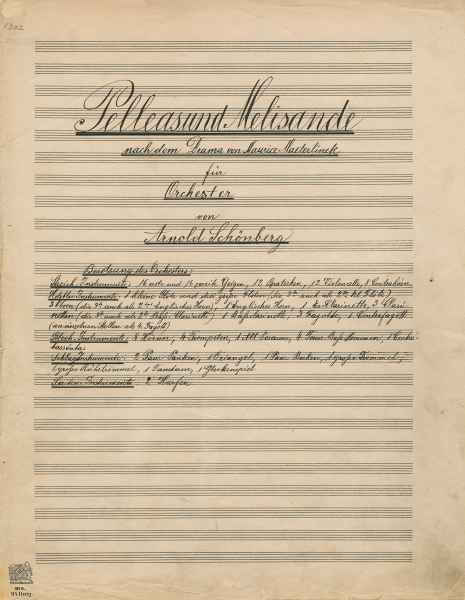 Pelleas und Melisande
nach dem Drama von Maurice Maeterlinck
für
Orchester
von
Arnold Schönberg
Besetzung des Orchesters:
Streich-Instrumente: 16 erste und 16 zweite Geigen, 12 Bratschen, 12 Violoncelle, 8 Contrabässe
Holzblas-Instrumente: 1 kleine Flöte und drei große Flöten (die auch als 2te kl. Flöte)
3 Oboen (die 3te auch als 2tes Englisches Horn), 1 Englisches Horn, 1 Es-Clarinette, 3 Clari
netten (die 3te auch als 2te Baß-Clarinette), 1 Baßclarinette, 3 Fagotte, 1 Contrafagott
(an manchen Stellen als 4. Fagott)
Blech-Instrumente: 8 Hörner, 4 Trompeten, 1 Alt-Posaune, 4 Tenor-Baß-Posaunen, 1 Contra
basstuba
Schlag-Instrumente: 2 Paar Pauken, 1 Triangel, 1 Paar Becken, 1 große Trommel,
1 große Rührtrommel, 1 Tamtam, 1 Glockenspiel
Saiten-Instrumente 2 Harfen